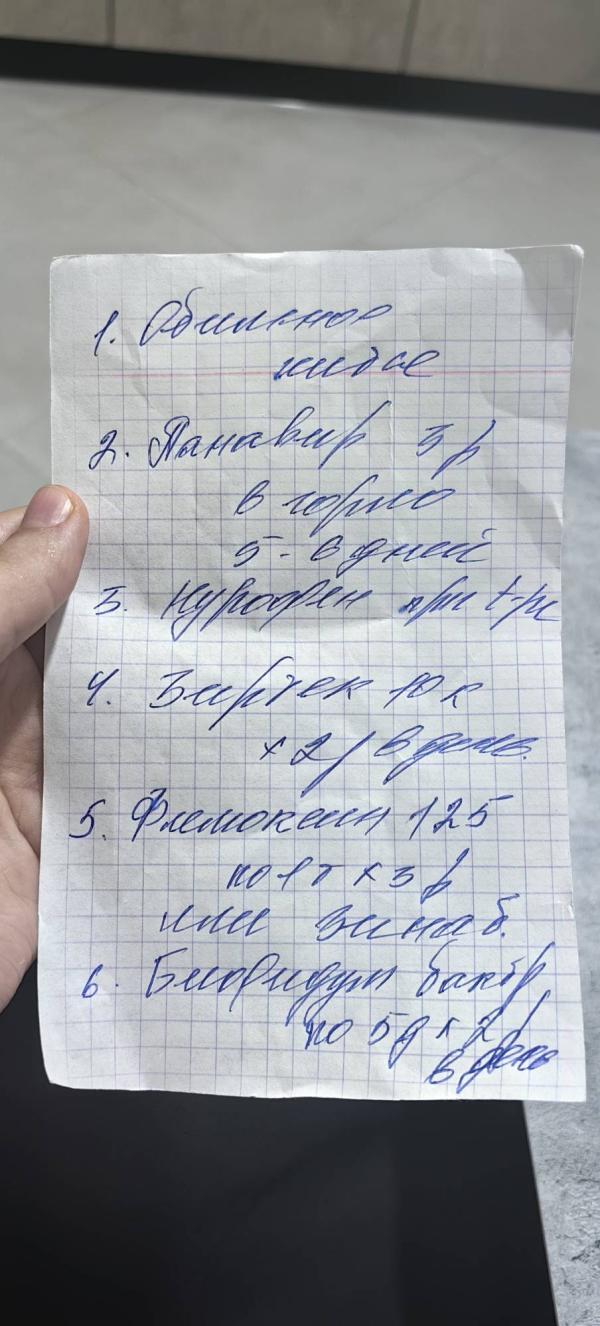 1. Обильное
питье
2. Панавир 3 р
в горло
5-6 дней
3. Нурофен при t-ре
4. Зиртек 10 к
х 2 р в день.
5. Флемоксин 125
по 1т х 3 р
или
6. Бифидум бакт
по 5д х 2 р
в день